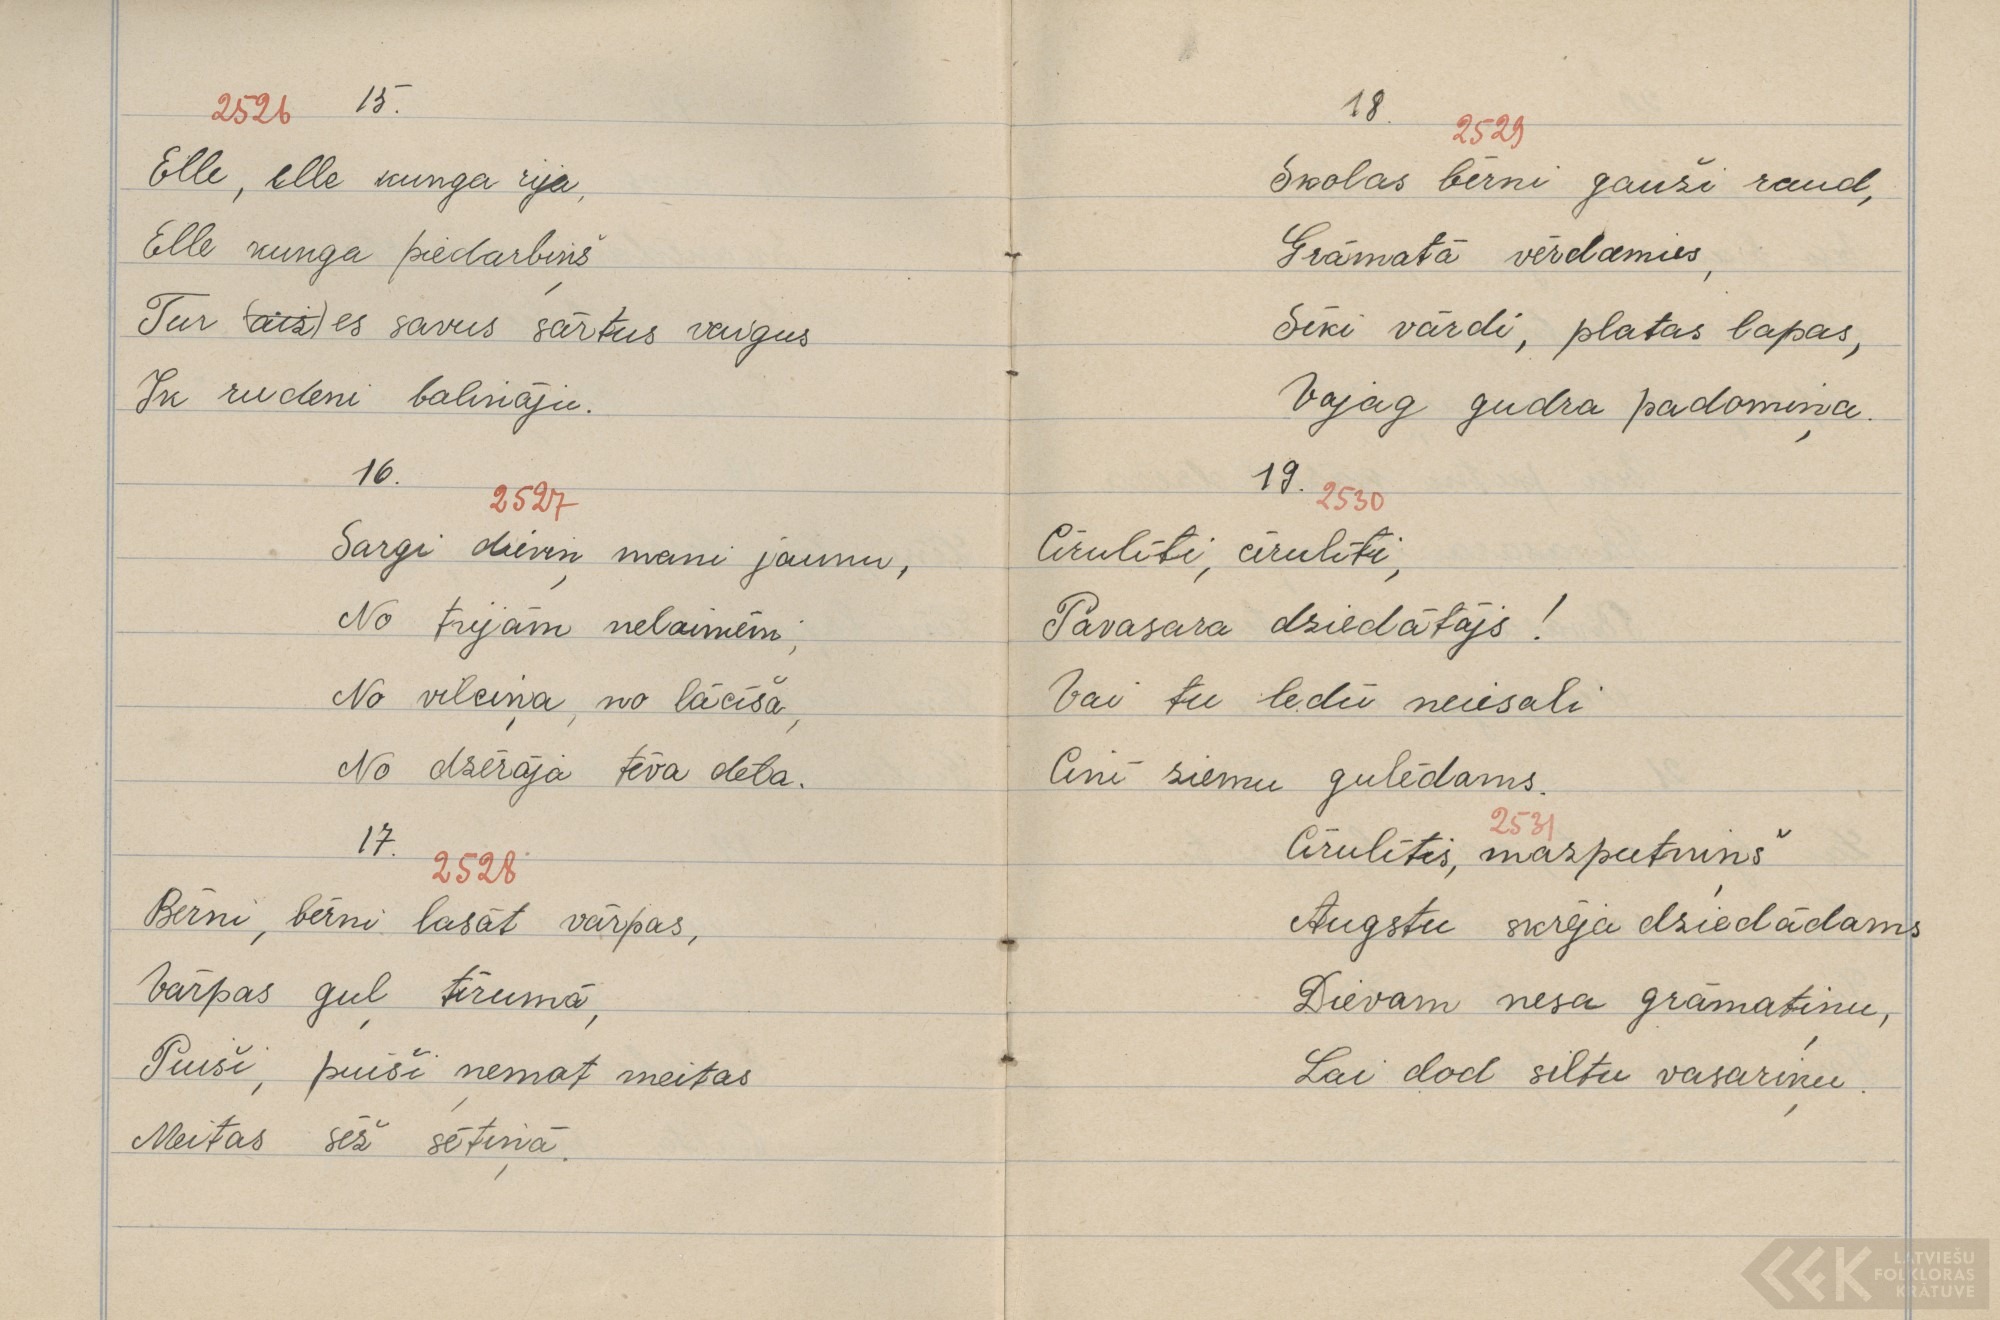 2526 15.
Elle, elle kunga rija,
Elle kunga piedarbiņš
Tur (aiz) es savus sārtus vaigus
Ik rudeni balināju.
16.
2527
Sargi dieviņ mani jaunu,
No trijām nelaimēm;
No vilciņa, no lācīša,
No dzērāja tēva dēla.
17.
2528
Bērni, bērni lasāt vārpas,
Vārpas guļ tīrumā,
Puiši, puiši ņemat meitas
Meitas sēž sētiņā.
18.
2529
Skolas bērni gauži raud,
Grāmatā vērdamies,
Sīki vārdi, platas lapas,
Vajag gudra padomiņa.
19. 2530
Cīrulīti, cīrulīti,
Pavasara dziedātājs!
Vai tu ledū neiesali
Cinī ziemu gulēdams.
2531
Cīrulītis, mazputniņš
Augstu skrēja dziedādams
Dievam nesa grāmatiņu,
Lai dod siltu vasariņu.
LATVIEŠU
FOLKLORAS
KRĀTUVE